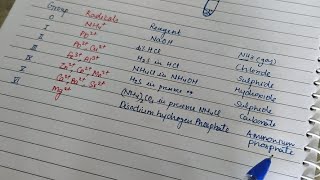 Group Radicals Reagent
0 NH4+ NaOH NH3 (gas)
I Pb2+ dil HCl Chloride
II Pb2+ Cu2+ H2S in HCl Sulphide
III Fe3+ Al3+ NH4Cl in NH4OH Hydroxide
IV H2S in presence Sulphide
V Ba2+ Sr2+ (NH4)2CO3 in presence NH4Cl Carbonate
VI Mg2+ Disodium hydrogen Phosphate Ammonium
phosphate